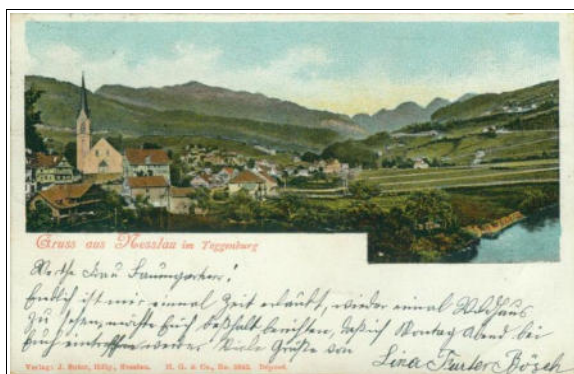 Gruss aus Nesslau im Toggenburg
Werthe Frau Baumgartner!
Endlich ist mir einmal Zeit erlaubt, wieder einmal Wildhaus
zu sehen, möchte Euch deßhalb berichten, daß ich Montag Abend bei
Euch eintreffen werde. Viele Grüße von
Lina Bösch
Verlag: J. Nesslau. H. G. & Co., No. Dépose.